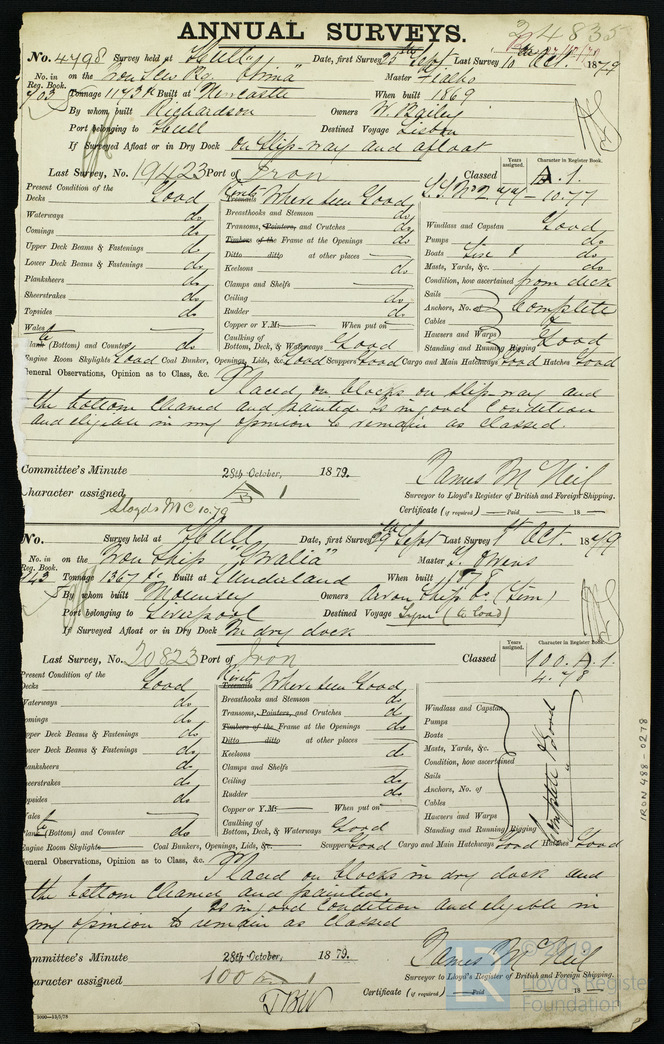 24835
ANNUAL SURVEYS.
No. 4498 Survey held at Hull Date, first Survey 25th Sept Last Survey 10 Oct. 1879
No. in Reg. Book. on the Iron Screw Master
703 Tonnage Built at Newcastle When built 1869
By whom built Richardson Owners W. Bailey
Port belonging to Hull Destined Voyage Lisbon
If Surveyed Afloat or in Dry Dock on slip-way and afloat
Last Survey, No. 19423 Port of Iron Classed Years assigned. Character in Register Book. A. 1.
S.S. No 2 10.77
Present Condition of the Rivets Where seen Good
Decks Good Breasthooks and Stemson do Windlass and Capstan Good
Waterways do Transoms, Pointers, and Crutches do Pumps do
Comings do Timbers of the Frame at the Openings do Boats do
Upper Deck Beams & Fastenings do Ditto ditto at other places Masts, Yards, &c. do
Lower Deck Beams & Fastenings do Keelsons do Condition, how ascertained from deck
Planksheers do Clamps and Shelfs Sails
Sheerstrakes do Ceiling do Anchors, No. of Complete
Topsides do Rudder do Cables
Wales Copper or Y.M. When put on Hawsers and Warps Good
Plank (Bottom) and Counter do Caulking of Bottom, Deck, & Waterways Good Standing and Running Rigging
Engine Room Skylights Good Coal Bunker, Openings, Lids, &c. Good Scuppers Good Cargo and Main Hatchways Good Hatches Good
General Observations, Opinion as to Class, &c. Placed on blocks on slip way and
the bottom cleaned and painted. Is in good condition
and eligible in my opinion to remain as classed.
Committee's Minute 28th October, 1879. James McNeil
Character assigned A 1 Surveyor to Lloyd's Register of British and Foreign Shipping.
Lloyds MC 10.79 Certificate (if required) Paid 18
No. Survey held at Hull Date, first Survey 29th Sept Last Survey 1st Oct. 1879
No. in Reg. Book. on the Iron Ship "Gwalia" Master Owens
243 Tonnage 1367 Built at Sunderland When built 1878
By whom built Mounsey Owners Arvon Ship Co (Lim)
Port belonging to Liverpool Destined Voyage Tyne (to load)
If Surveyed Afloat or in Dry Dock In dry dock
Last Survey, No. 20823 Port of Iron Classed Years assigned. Character in Register Book. 100. A. 1.
4.78
Present Condition of the Rivets Where seen Good
Decks Good Breasthooks and Stemson do Windlass and Capstan
Waterways do Transoms, Pointers, and Crutches do Pumps
Comings do Timbers of the Frame at the Openings do Boats
Upper Deck Beams & Fastenings do Ditto ditto at other places Masts, Yards, &c.
Lower Deck Beams & Fastenings do Keelsons do Condition, how ascertained
Planksheers do Clamps and Shelfs Sails
Sheerstrakes do Ceiling do Anchors, No. of
Topsides do Rudder do Cables
Wales Copper or Y.M. When put on Hawsers and Warps
Plank (Bottom) and Counter do Caulking of Bottom, Deck, & Waterways Good Standing and Running Rigging
Complete & Good
Engine Room Skylights Coal Bunkers, Openings, &c. Scuppers Good Cargo and Main Hatchways Good Hatches Good
General Observations, Opinion as to Class, &c. Placed on blocks in dry dock and
the bottom cleaned and painted.
Is in good condition and eligible in
my opinion to remain as classed
Committee's Minute 28th October, 1879. James McNeil
Character assigned 100 A 1 Surveyor to Lloyd's Register of British and Foreign Shipping.
TBW Certificate (if required) Paid 18
IRON 488-0278
© 2019
LR Lloyd's Register Foundation